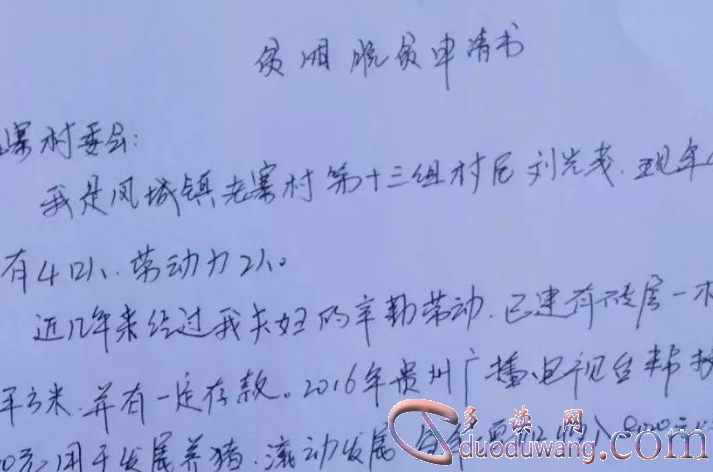 贫困脱贫申请书
寨村委会:
我是凤城镇老寨村第十三组村民刘光茂.现年
有4口人、劳动力2人。
近几年来经过我夫妇的辛勤劳动.已建有砖房一
平方米.并有一定存款。2016年贵州广播电视台帮扶
0元用于发展养猪.滚动发展
多读网
duoduwang.com